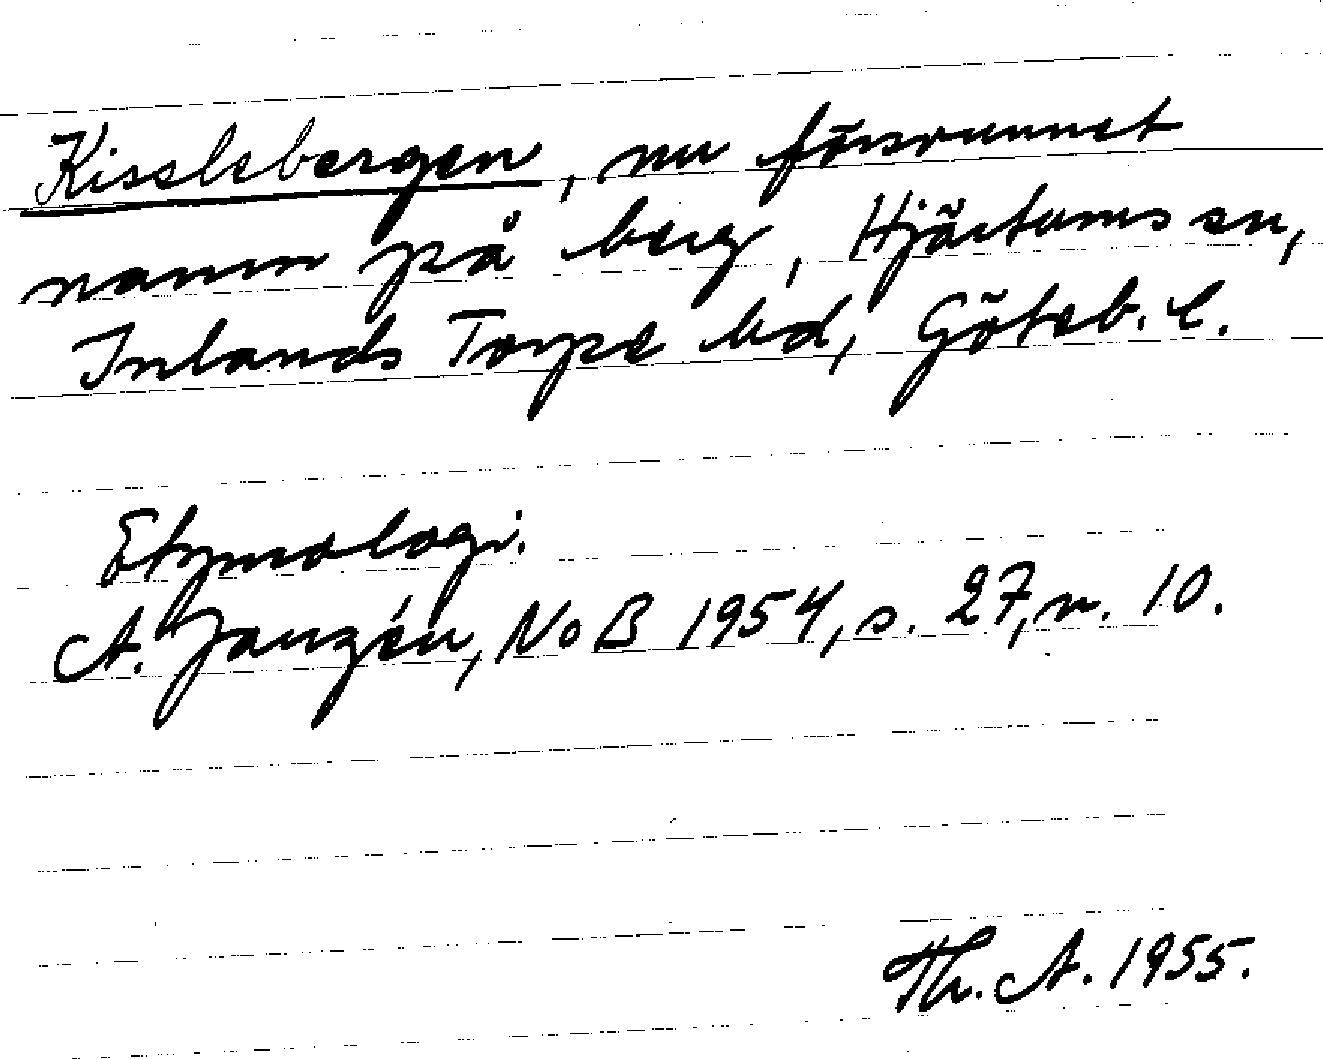 Kisslebergen, nu försvunnet
namn på berg, Hjärtums sn,
Inlands Torpe hd, Göteb. l.
Etymologi.
A. Janzén, NoB 1954, s. 27, n. 10.
Th. A. 1955.